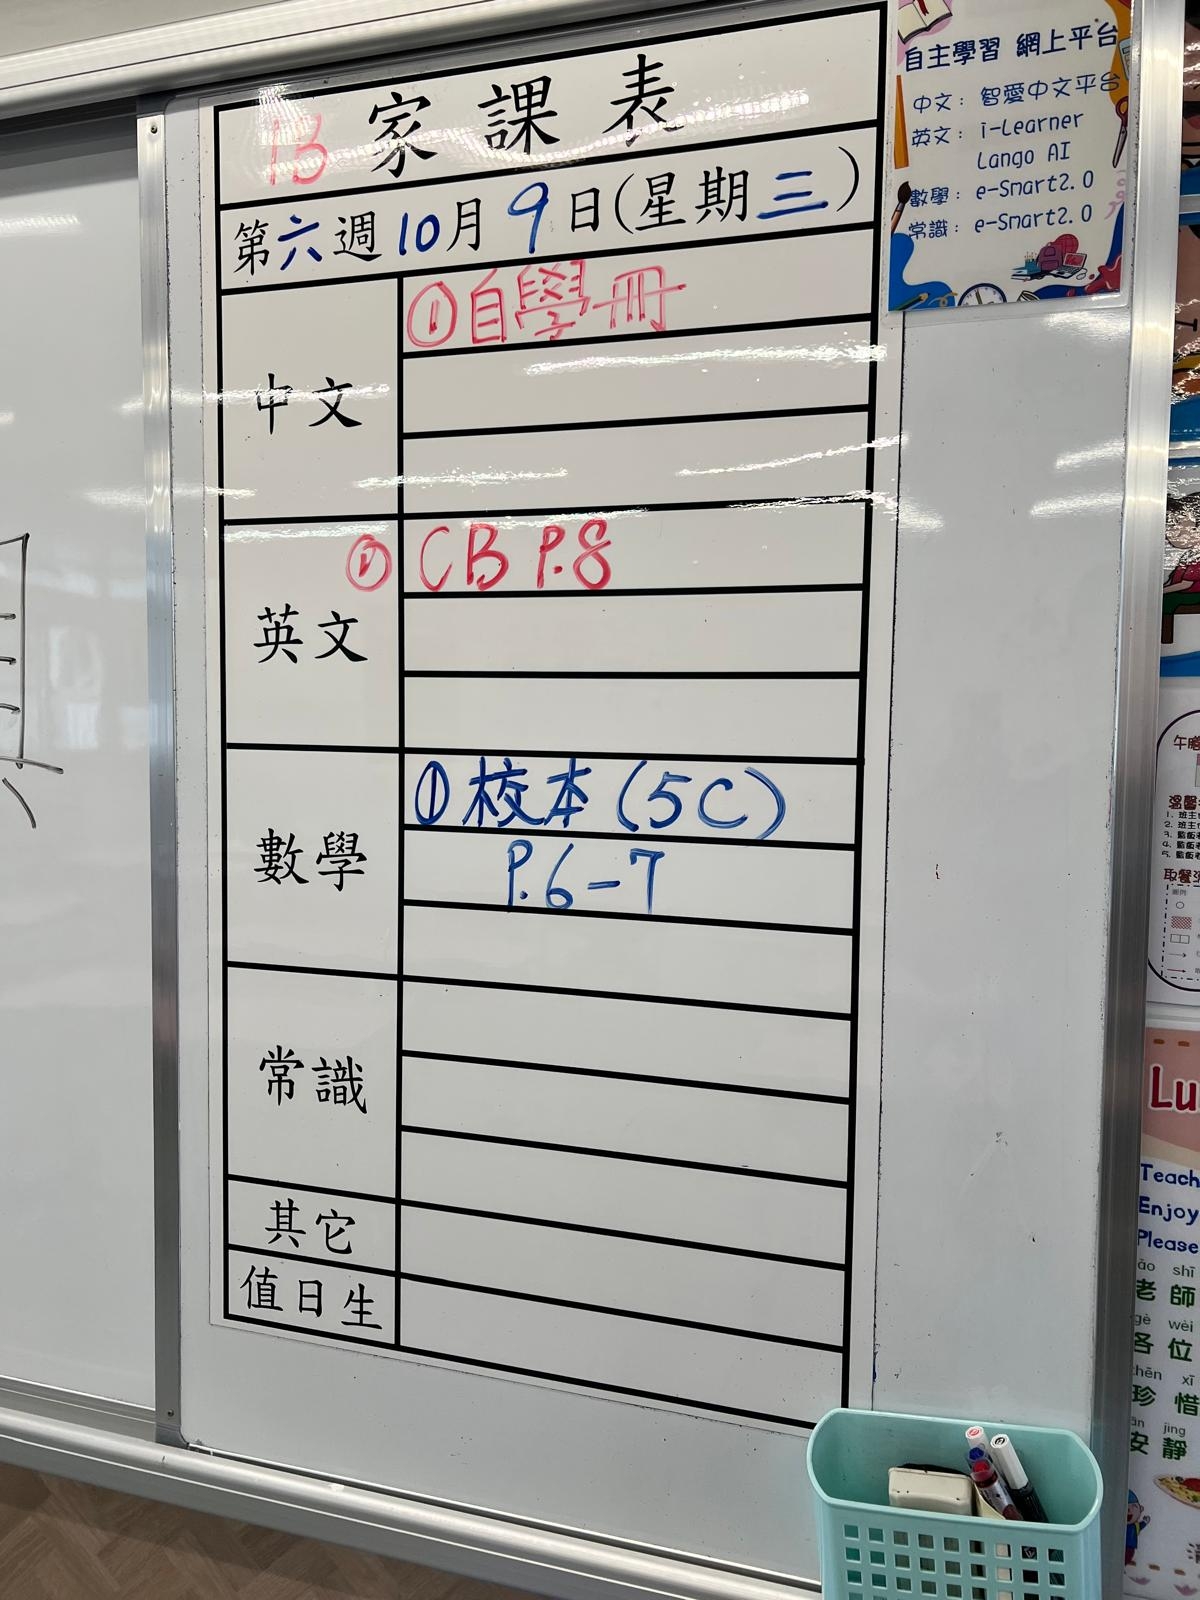 1B 家課表
第六週10月9日(星期三)
中文
①自學冊
英文
② CB P.8
數學
①校本(5C)
P.6-7
常識
其它
值日生
自主學習 網上平台
中文: 智愛中文平台
英文: i-Learner
Lango AI
數學: e-Smart2.0
常識: e-Smart2.0
午膳
溫馨
取餐
Lu
Teach
Enjoy
Please
ǎo shī
老師
gè wèi
各位
zhēn xī
珍惜
ān jìng
安靜